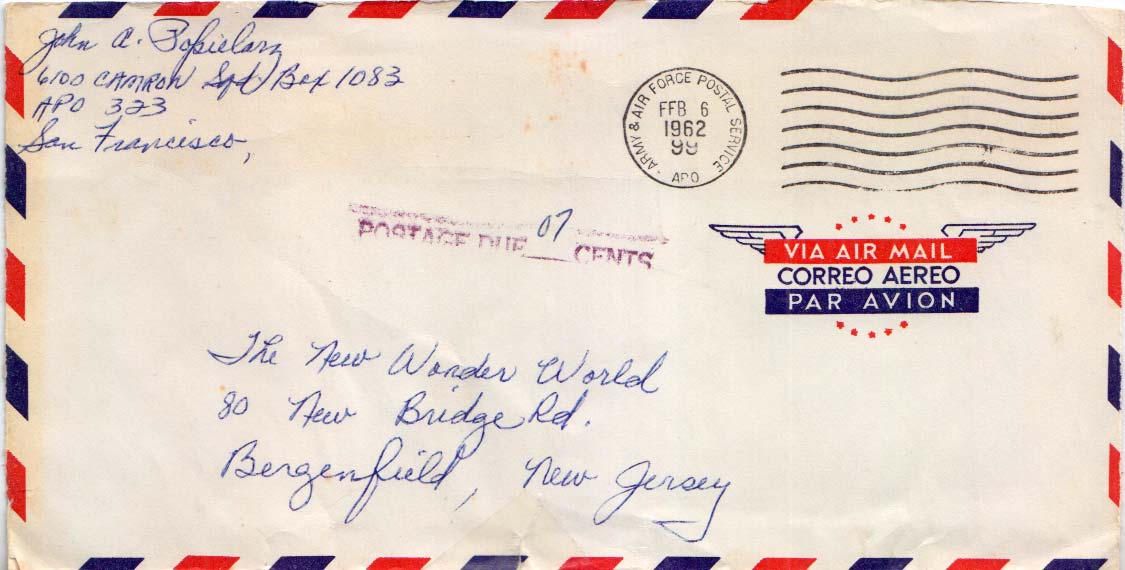 John A. Popielarz
6100 CAMRON Spt. Box 1083
APO 323
San Francisco,
ARMY & AIR FORCE POSTAL SERVICE
FEB 6
1962
99
APO
POSTAGE DUE 07 CENTS
VIA AIR MAIL
CORREO AEREO
PAR AVION
The New Wonder World
80 New Bridge Rd.
Bergenfield, New Jersey